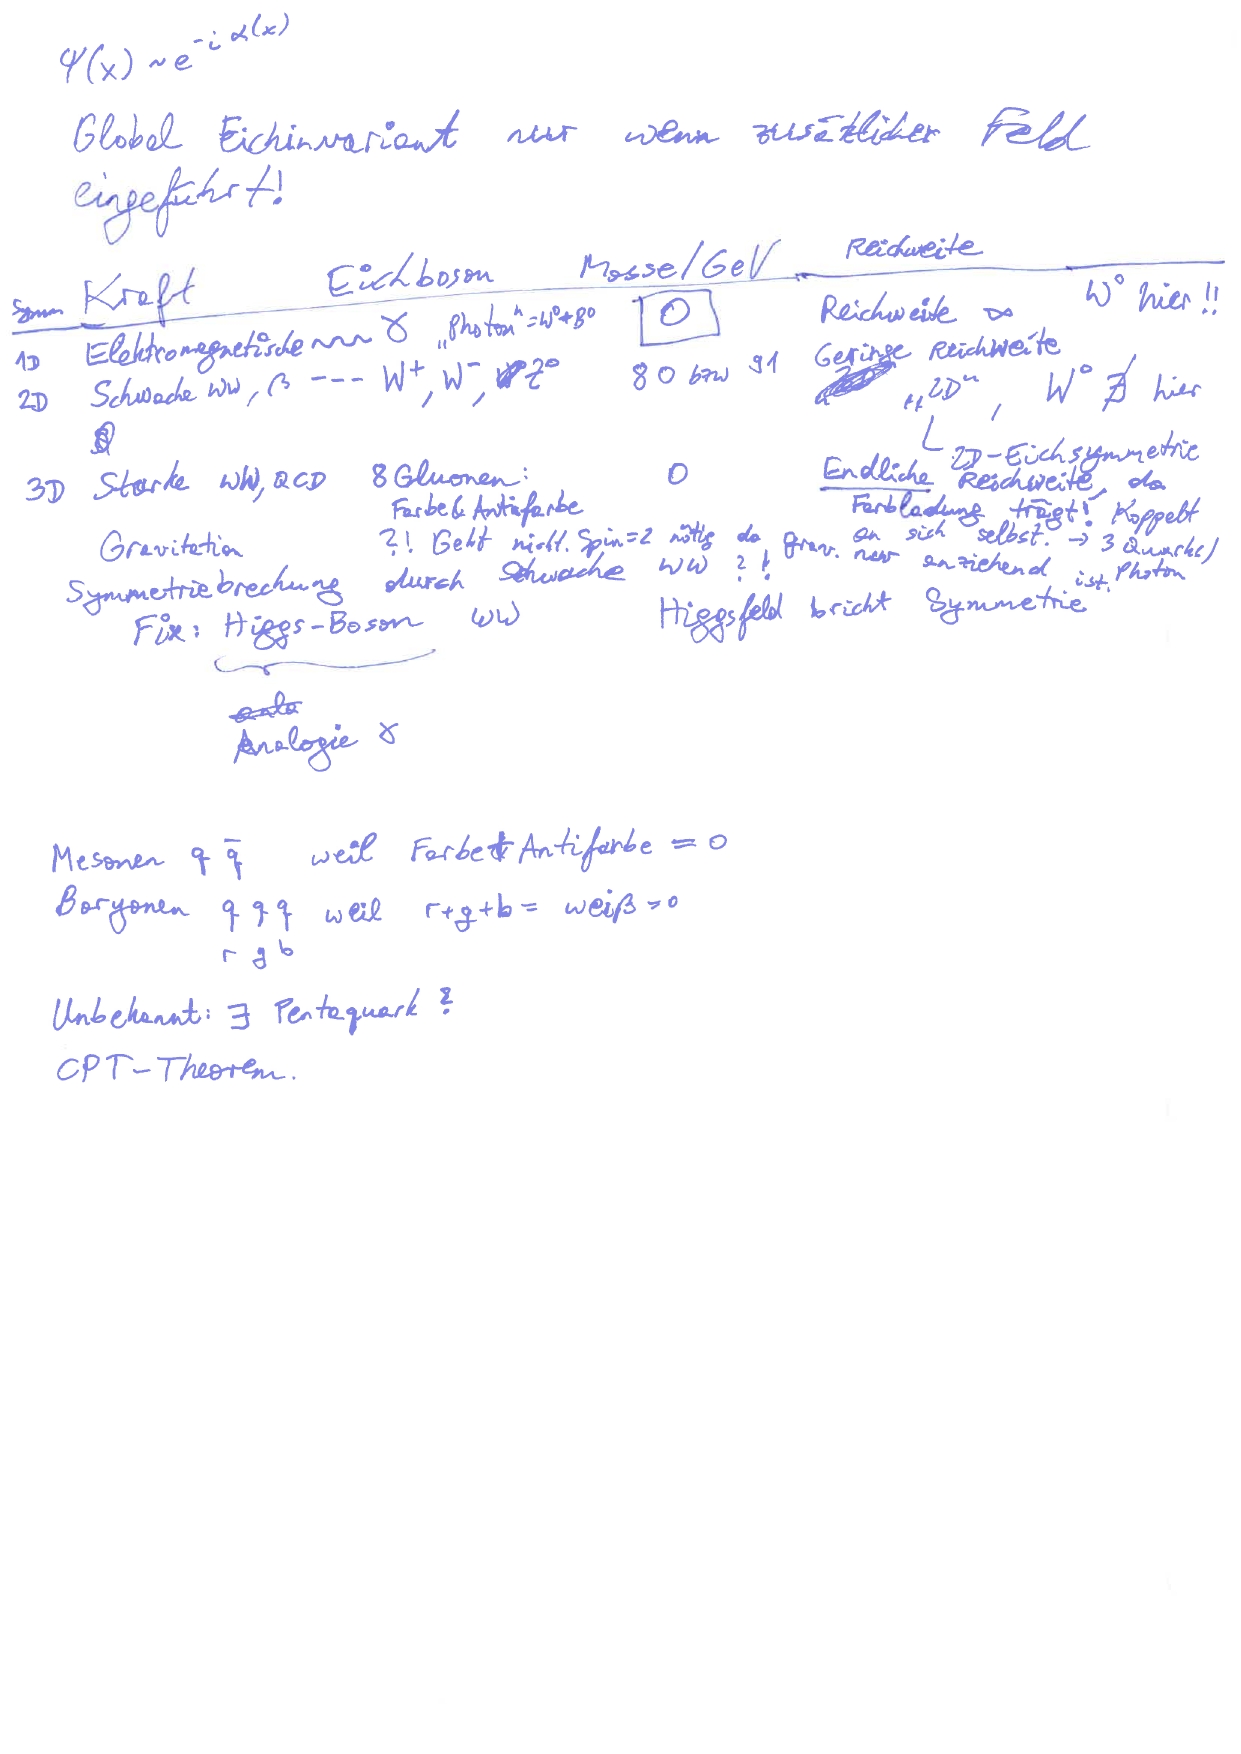 Ψ(x) ~ e^{-i α(x)}
Global Eichinvariant nur wenn zusätzlicher Feld
eingeführt!
Symm Kraft Eichboson Masse/GeV Reichweite
1D Elektromagnetische γ „Photon“=W⁰+B⁰ 0 Reichweite ∞ W⁰ hier!!
2D Schwache WW, β --- W⁺, W⁻, Z⁰ 80 bzw 91 Geringe Reichweite
„2D“, W⁰ ∄ hier
2D-Eichsymmetrie
3D Starke WW, QCD 8 Gluonen: 0 Endliche Reichweite, da
Farbe & Antifarbe Farbladung trägt! Koppelt
an sich selbst. → 3 Quarks/
Gravitation ?! Geht nicht. Spin=2 nötig da grav. nur anziehend ist. Photon
Symmetriebrechung durch Schwache WW ?!
Fix: Higgs-Boson WW Higgsfeld bricht Symmetrie
Analogie γ
Mesonen q q̄ weil Farbe + Antifarbe = 0
Baryonen q q q weil r+g+b = weiß = 0
r g b
Unbekannt: ∃ Pentaquark?
CPT-Theorem.